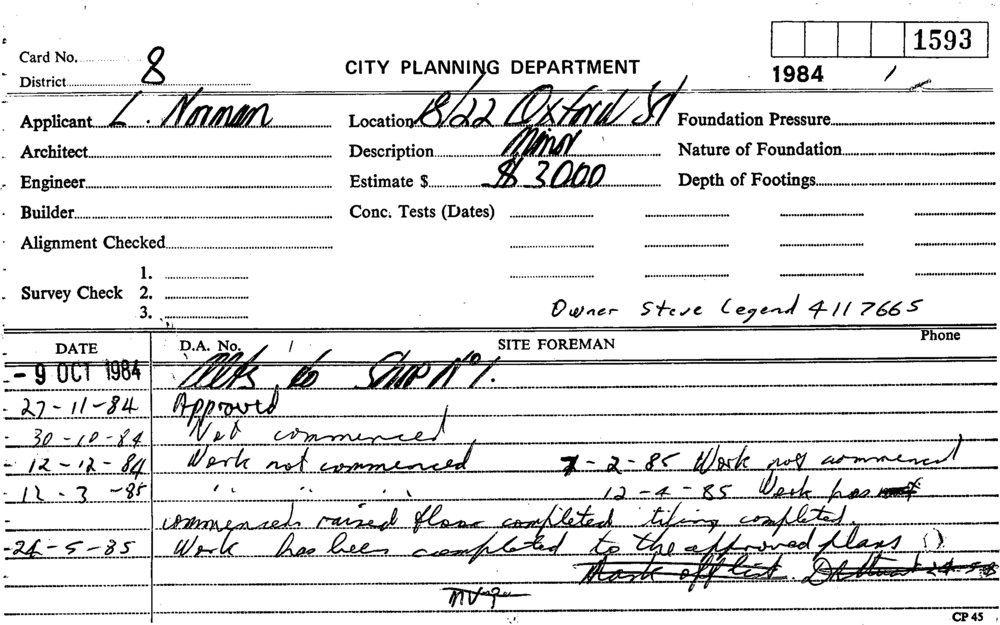 1593
Card No. 8
District
CITY PLANNING DEPARTMENT
1984 /
Applicant L. Norman Location 18/22 Oxford St Foundation Pressure
Architect Description Minor Nature of Foundation
Engineer Estimate $ $ 3000 Depth of Footings
Builder Conc. Tests (Dates)
Alignment Checked
1.
Survey Check 2.
3.
Owner Steve Legend 4117665
DATE D.A. No. / SITE FOREMAN Phone
- 9 OCT 1984 Alts to Shop No 1.
27-11-84 Approved
30-10-84 Not commenced
12-12-84 Work not commenced 7-2-85 Work not commenced
12-3-85 " " " 12-4-85 Work has
commenced raised floor completed tiling completed.
24-5-85 Work has been completed to the approved plans
Mark off list
CP 45